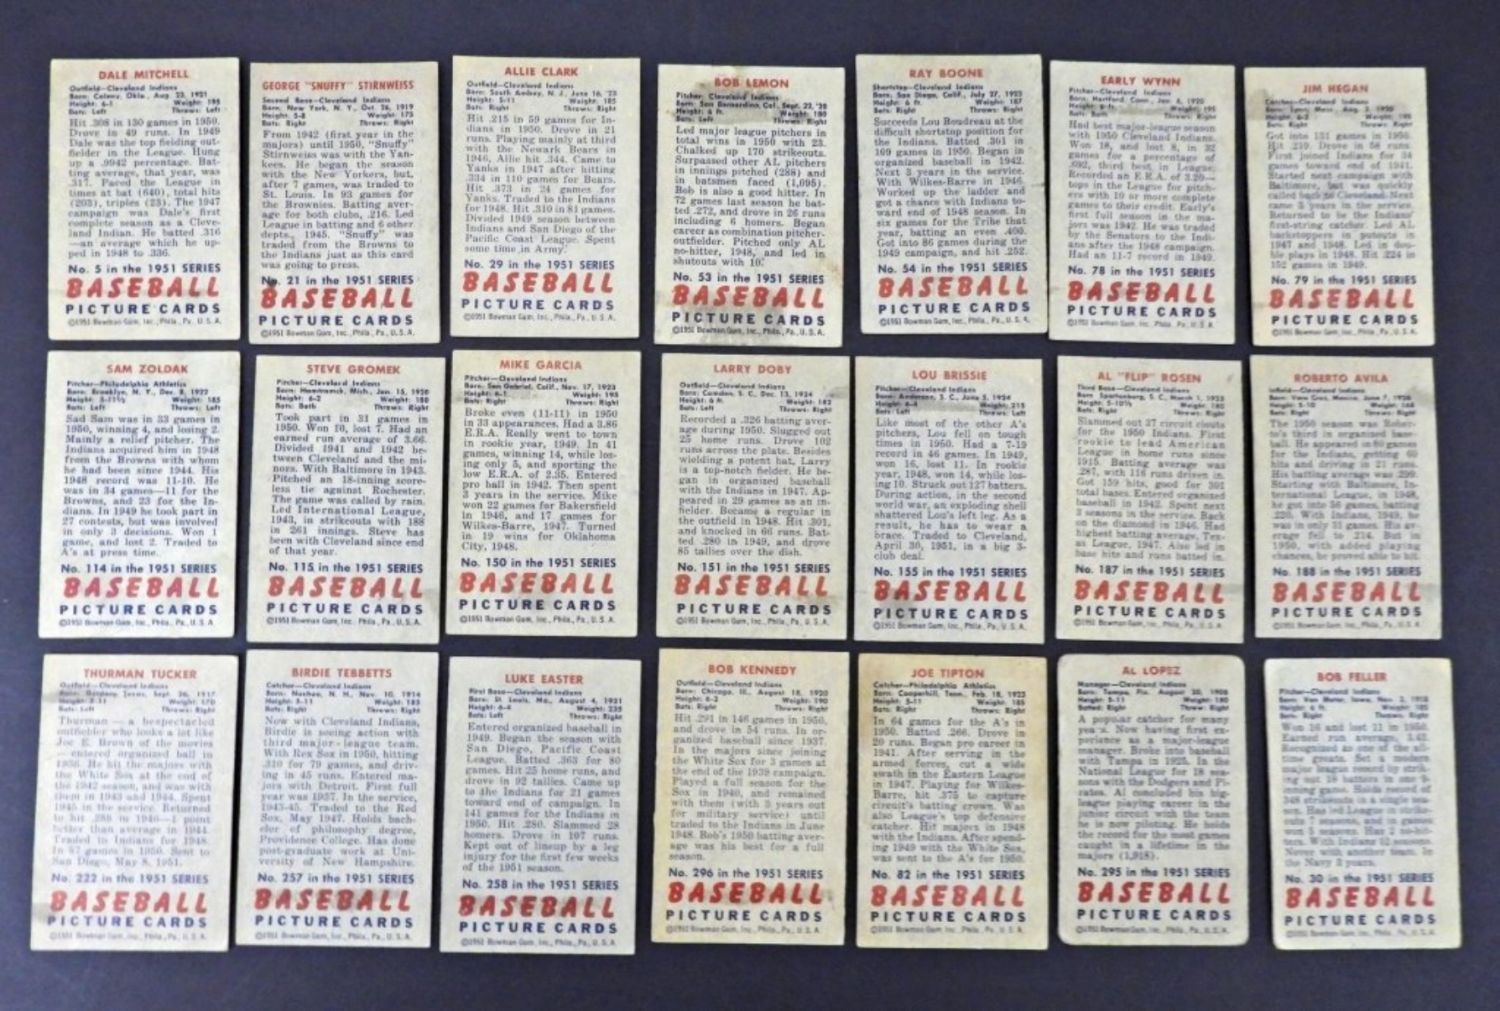 DALE MITCHELL
Outfield—Cleveland Indians
Born: Colony, Okla., Aug. 23, 1921
Height: 6-1 Weight: 195
Bats: Left Throws: Left
Hit .308 in 130 games in 1950.
Drove in 49 runs. In 1949
Dale was the top fielding out-
fielder in the League. Hung
up a .9942 percentage. Bat-
ting average, that year, was
.317. Paced the League in
times at bat (640), total hits
(203), triples (23). The 1947
campaign was Dale's first
complete season as a Cleve-
land Indian. He batted .316
—an average which he up-
ped in 1948 to .336.
No. 5 in the 1951 SERIES
BASEBALL
PICTURE CARDS
©1951 Bowman Gum, Inc., Phila., Pa., U.S.A.
GEORGE "SNUFFY" STIRNWEISS
Second Base—Cleveland Indians
Born: New York, N. Y., Oct. 26, 1919
Height: 5-8 Weight: 175
Bats: Right Throws: Right
From 1942 (first year in the
majors) until 1950, "Snuffy"
Stirnweiss was with the Yan-
kees. He began the season
with the New Yorkers, but,
after 7 games, was traded to
St. Louis. In 93 games for
the Browns. Batting aver-
age for both clubs, .216. Led
League in batting and 6 other
depts., 1945. "Snuffy" was
traded from the Browns to
the Indians just as this card
was going to press.
No. 21 in the 1951 SERIES
BASEBALL
PICTURE CARDS
©1951 Bowman Gum, Inc., Phila., Pa., U.S.A.
ALLIE CLARK
Outfield—Cleveland Indians
Born: South Amboy, N. J., June 16, '23
Height: 5-11 Weight: 185
Bats: Right Throws: Right
Hit .215 in 59 games for In-
dians in 1950. Drove in 21
runs. Playing mainly at third
with the Newark Bears in
1946, Allie hit .344. Came to
Yanks in 1947 after hitting
.334 in 110 games for Bears.
Hit .373 in 24 games for
Yanks. Traded to the Indians
for 1948. Hit .310 in 81 games.
Divided 1949 season between
Indians and San Diego of the
Pacific Coast League. Spent
some time in Army.
No. 29 in the 1951 SERIES
BASEBALL
PICTURE CARDS
©1951 Bowman Gum, Inc., Phila., Pa., U.S.A.
BOB LEMON
Pitcher—Cleveland Indians
Born: San Bernardino, Cal., Sept. 22, '20
Height: 6 ft. Weight: 180
Bats: Left Throws: Right
Led major league pitchers in
total wins in 1950 with 23.
Chalked up 170 strikeouts.
Surpassed other AL pitchers
in innings pitched (288) and
in batsmen faced (1,095).
Bob is also a good hitter. In
72 games last season he bat-
ted .272, and drove in 26 runs
including 6 homers. Began
career as combination pitcher-
outfielder. Pitched only AL
no-hitter, 1948, and led in
shutouts with 10.
No. 53 in the 1951 SERIES
BASEBALL
PICTURE CARDS
©1951 Bowman Gum, Inc., Phila., Pa., U.S.A.
RAY BOONE
Shortstop—Cleveland Indians
Born: San Diego, Calif., July 27, 1923
Height: 6 ft. Weight: 187
Bats: Right Throws: Right
Succeeds Lou Boudreau at the
difficult shortstop position for
the Indians. Batted .301 in
109 games in 1950. Began in
organized baseball in 1942.
Next 3 years in the service.
With Wilkes-Barre in 1946.
Worked up the ladder and
got a chance with Indians to-
ward end of 1948 season. In
six games for the Tribe that
year, batting an even .400.
Got into 86 games during the
1949 campaign, and hit .252.
No. 54 in the 1951 SERIES
BASEBALL
PICTURE CARDS
©1951 Bowman Gum, Inc., Phila., Pa., U.S.A.
EARLY WYNN
Pitcher—Cleveland Indians
Born: Hartford, Conn., Jan. 6, 1920
Height: 6 ft. Weight: 195
Bats: Both Throws: Right
Had best major-league season
with 1950 Cleveland Indians.
Won 18, and lost 8, in 32
games for a percentage of
.692, third best in League.
Recorded an E.R.A. of 3.20—
tops in the League for pitch-
ers with 10 or more complete
games to their credit. Early's
first full season in the ma-
jors was 1942. He was traded
by the Senators to the Indi-
ans after the 1948 campaign.
Had an 11-7 record in 1949.
No. 78 in the 1951 SERIES
BASEBALL
PICTURE CARDS
©1951 Bowman Gum, Inc., Phila., Pa., U.S.A.
JIM HEGAN
Catcher—Cleveland Indians
Born: Lynn, Mass., Aug. 3, 1920
Height: 6-2 Weight: 195
Bats: Right Throws: Right
Got into 131 games in 1950.
Hit .219. Drove in 58 runs.
First joined Indians for 34
games toward end of 1941.
Started next campaign with
Baltimore, but was quickly
called back to Cleveland. Next
came 3 years in the service.
Returned to be the Indians'
first-string catcher. Led AL
backstoppers in putouts in
1947 and 1948. Led in dou-
ble plays in 1948. Hit .224 in
152 games in 1949.
No. 79 in the 1951 SERIES
BASEBALL
PICTURE CARDS
©1951 Bowman Gum, Inc., Phila., Pa., U.S.A.
SAM ZOLDAK
Pitcher—Philadelphia Athletics
Born: Brooklyn, N. Y., Dec. 8, 1922
Height: 5-11½ Weight: 185
Bats: Left Throws: Left
Sad Sam was in 33 games in
1950, winning 4, and losing 2.
Mainly a relief pitcher. The
Indians acquired him in 1948
from the Browns with whom
he had been since 1944. His
1948 record was 11-10. He
was in 34 games—11 for the
Browns, and 23 for the In-
dians. In 1949 he took part in
27 contests, but was involved
in only 3 decisions. Won 1
game, and lost 2. Traded to
A's at press time.
No. 114 in the 1951 SERIES
BASEBALL
PICTURE CARDS
©1951 Bowman Gum, Inc., Phila., Pa., U.S.A.
STEVE GROMEK
Pitcher—Cleveland Indians
Born: Hamtramck, Mich., Jan. 15, 1920
Height: 6-2 Weight: 180
Bats: Both Throws: Right
Took part in 31 games in
1950. Won 10, lost 7. Had an
earned run average of 3.66.
Divided 1941 and 1942 be-
tween Cleveland and the mi-
nors. With Baltimore in 1943.
Pitched an 18-inning score-
less tie against Rochester.
The game was called by rain.
Led International League,
1943, in strikeouts with 188
in 261 innings. Steve has
been with Cleveland since end
of that year.
No. 115 in the 1951 SERIES
BASEBALL
PICTURE CARDS
©1951 Bowman Gum, Inc., Phila., Pa., U.S.A.
MIKE GARCIA
Pitcher—Cleveland Indians
Born: San Gabriel, Calif., Nov. 17, 1923
Height: 6-1 Weight: 195
Bats: Right Throws: Right
Broke even (11-11) in 1950
in 33 appearances. Had a 3.86
E.R.A. Really went to town
in rookie year, 1949. In 41
games, winning 14, while los-
ing only 5, and sporting the
low E.R.A. of 2.35. Entered
pro ball in 1942. Then spent
3 years in the service. Mike
won 22 games for Bakersfield
in 1946, and 17 games for
Wilkes-Barre, 1947. Turned
in 19 wins for Oklahoma
City, 1948.
No. 150 in the 1951 SERIES
BASEBALL
PICTURE CARDS
©1951 Bowman Gum, Inc., Phila., Pa., U.S.A.
LARRY DOBY
Outfield—Cleveland Indians
Born: Camden, S. C., Dec. 13, 1924
Height: 6 ft. Weight: 182
Bats: Left Throws: Right
Recorded a .326 batting aver-
age during 1950. Slugged out
25 home runs. Drove 102
runs across the plate. Besides
wielding a potent bat, Larry
is a top-notch fielder. He be-
gan in organized baseball
with the Indians in 1947. Ap-
peared in 29 games as an in-
fielder. Became a regular in
the outfield in 1948. Hit .301,
and knocked in 66 runs. Bat-
ted .280 in 1949, and drove
85 tallies over the dish.
No. 151 in the 1951 SERIES
BASEBALL
PICTURE CARDS
©1951 Bowman Gum, Inc., Phila., Pa., U.S.A.
LOU BRISSIE
Pitcher—Cleveland Indians
Born: Anderson, S. C., June 5, 1924
Height: 6-4 Weight: 215
Bats: Left Throws: Left
Like most of the other A's
pitchers, Lou fell on tough
times in 1950. Had a 7-19
record in 46 games. In 1949,
won 16, lost 11. In rookie
year, 1948, won 14, while los-
ing 10. Struck out 127 batters.
During action, in the second
world war, an exploding shell
shattered Lou's left leg. As a
result, he has to wear a
brace. Traded to Cleveland,
April 30, 1951, in a big 3-
club deal.
No. 155 in the 1951 SERIES
BASEBALL
PICTURE CARDS
©1951 Bowman Gum, Inc., Phila., Pa., U.S.A.
AL "FLIP" ROSEN
Third Base—Cleveland Indians
Born: Spartanburg, S. C., March 1, 1925
Height: 5-10½ Weight: 180
Bats: Right Throws: Right
Slammed out 37 circuit clouts
for the 1950 Indians. First
rookie to lead American
League in home runs since
1915. Batting average was
.287, with 116 driven in.
Got 159 hits, good for 301
total bases. Entered organized
baseball in 1942. Spent next
3 seasons in the service. Back
on the diamond in 1946. Had
highest batting average, Tex-
as League, 1947. Also led in
base hits and runs batted in.
No. 187 in the 1951 SERIES
BASEBALL
PICTURE CARDS
©1951 Bowman Gum, Inc., Phila., Pa., U.S.A.
ROBERTO AVILA
Infield—Cleveland Indians
Height: 5-10
Bats: Right Throws: Right
The 1950 season was Rober-
to's third in organized base-
ball. He appeared in 80 games
for the Indians, getting 60
hits and driving in 21 runs.
His batting average was .299.
Starting with Baltimore, In-
ternational League, in 1948,
he got into 56 games, batting
.220. With Indians, 1949, he
was in only 31 games. His av-
erage fell to .214. But in
1950, with added playing
chances, he proved able to hit.
No. 188 in the 1951 SERIES
BASEBALL
PICTURE CARDS
©1951 Bowman Gum, Inc., Phila., Pa., U.S.A.
THURMAN TUCKER
Outfield—Cleveland Indians
Born: Gordon, Texas, Sept. 26, 1917
Height: 5-11 Weight: 170
Bats: Left Throws: Right
Thurman — a bespectacled
outfielder who looks a lot like
Joe E. Brown of the movies
— entered organized ball in
1936. He hit the majors with
the White Sox at the end of
the 1942 season, and was with
them in 1943 and 1944. Spent
1945 in the service. Returned
to hit .288 in 1946—1 point
better than average in 1944.
In 57 games in 1950. Sent to
San Diego, May 8, 1951.
No. 222 in the 1951 SERIES
BASEBALL
PICTURE CARDS
©1951 Bowman Gum, Inc., Phila., Pa., U.S.A.
BIRDIE TEBBETTS
Catcher—Cleveland Indians
Born: Nashua, N. H., Nov. 10, 1914
Height: 5-11 Weight: 185
Bats: Right Throws: Right
Now with Cleveland Indians,
Birdie is seeing action with
third major-league team.
With Red Sox in 1950, hitting
.310 for 79 games, and driv-
ing in 45 runs. Entered ma-
jors with Detroit. First full
year was 1937. In the service,
1943-45. Traded to the Red
Sox, May 1947. Holds bach-
elor of philosophy degree,
Providence College. Has done
post-graduate work at Uni-
versity of New Hampshire.
No. 257 in the 1951 SERIES
BASEBALL
PICTURE CARDS
©1951 Bowman Gum, Inc., Phila., Pa., U.S.A.
LUKE EASTER
First Base—Cleveland Indians
Born: St. Louis, Mo., August 4, 1921
Height: 6-4 Weight: 235
Bats: Left Throws: Right
Entered organized baseball in
1949. Began the season with
San Diego, Pacific Coast
League. Batted .363 for 80
games. Hit 25 home runs, and
drove in 92 tallies. Came up
to the Indians for 21 games
toward end of campaign. In
141 games for the Indians in
1950. Hit .280. Slammed 28
homers. Drove in 107 runs.
Kept out of lineup by a leg
injury for the first few weeks
of the 1951 season.
No. 258 in the 1951 SERIES
BASEBALL
PICTURE CARDS
©1951 Bowman Gum, Inc., Phila., Pa., U.S.A.
BOB KENNEDY
Outfield—Cleveland Indians
Born: Chicago, Ill., August 18, 1920
Height: 6-2 Weight: 190
Bats: Right Throws: Right
Hit .291 in 146 games in 1950,
and drove in 54 runs. In or-
ganized baseball since 1937.
In the majors since joining
the White Sox for 3 games at
the end of the 1939 campaign.
Played a full season for the
Sox in 1940, and remained
with them (with 3 years out
for military service) until
traded to the Indians in June
1948. Bob's 1950 batting aver-
age was his best for a full
season.
No. 296 in the 1951 SERIES
BASEBALL
PICTURE CARDS
©1951 Bowman Gum, Inc., Phila., Pa., U.S.A.
JOE TIPTON
Catcher—Philadelphia Athletics
Born: Copperhill, Tenn., Feb. 18, 1923
Height: 5-11 Weight: 185
Bats: Right Throws: Right
In 64 games for the A's in
1950. Batted .266. Drove in
20 runs. Began pro career in
1941. After serving in the
armed forces, cut a wide
swath in the Eastern League
in 1947. Playing for Wilkes-
Barre, hit .375 to capture
circuit's batting crown. Was
also League's top defensive
catcher. Hit majors in 1948
with the Indians. After spend-
ing 1949 with the White Sox,
was sent to the A's for 1950.
No. 82 in the 1951 SERIES
BASEBALL
PICTURE CARDS
©1951 Bowman Gum, Inc., Phila., Pa., U.S.A.
AL LOPEZ
Manager—Cleveland Indians
Born: Tampa, Fla., August 20, 1908
Height: 5-11 Weight: 180
Batted: Right Threw: Right
A popular catcher for many
years. Now having first exp-
erience as a major-league
manager. Broke into baseball
with Tampa in 1925. In the
National League for 18 sea-
sons with the Dodgers and Pi-
rates. Al concluded his big-
league playing career in the
junior circuit with the team
he is now piloting. He holds
the record for the most games
caught in a lifetime in the
majors (1,918).
No. 295 in the 1951 SERIES
BASEBALL
PICTURE CARDS
©1951 Bowman Gum, Inc., Phila., Pa., U.S.A.
BOB FELLER
Pitcher—Cleveland Indians
Born: Van Meter, Iowa, Nov. 3, 1918
Height: 6 ft. Weight: 185
Bats: Right Throws: Right
Won 16 and lost 11 in 1950.
Earned run average, 3.43.
Recognized as one of the all-
time greats. Set a modern
major league record by strik-
ing out 18 batters in one 9-
inning game. Holds record of
348 strikeouts in a single sea-
son. Has led League in strike-
outs 7 seasons, and in games
won 5 seasons. Has 2 no-hit-
ters. With Indians 12 seasons.
Never with another team. In
the Navy 3 years.
No. 30 in the 1951 SERIES
BASEBALL
PICTURE CARDS
©1951 Bowman Gum, Inc., Phila., Pa., U.S.A.